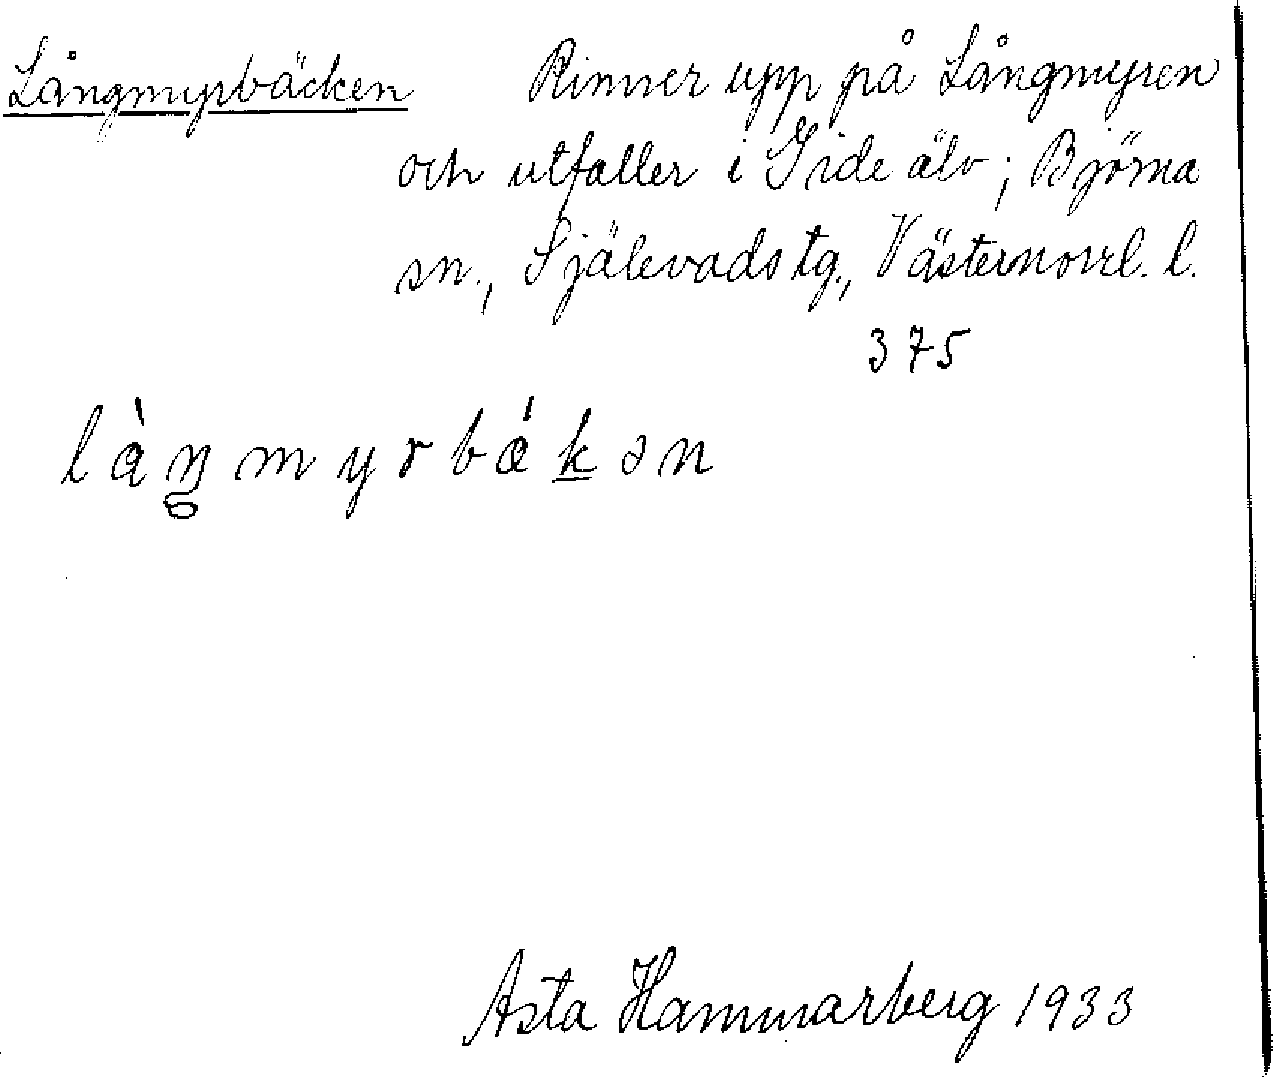 Långmyrbäcken Rinner upp på Långmyren
och utfaller i Gide älv; Björna
sn., Själevads tg., Västernorrl. l.
375
làŋmyrbákən
Asta Hammarberg 1933